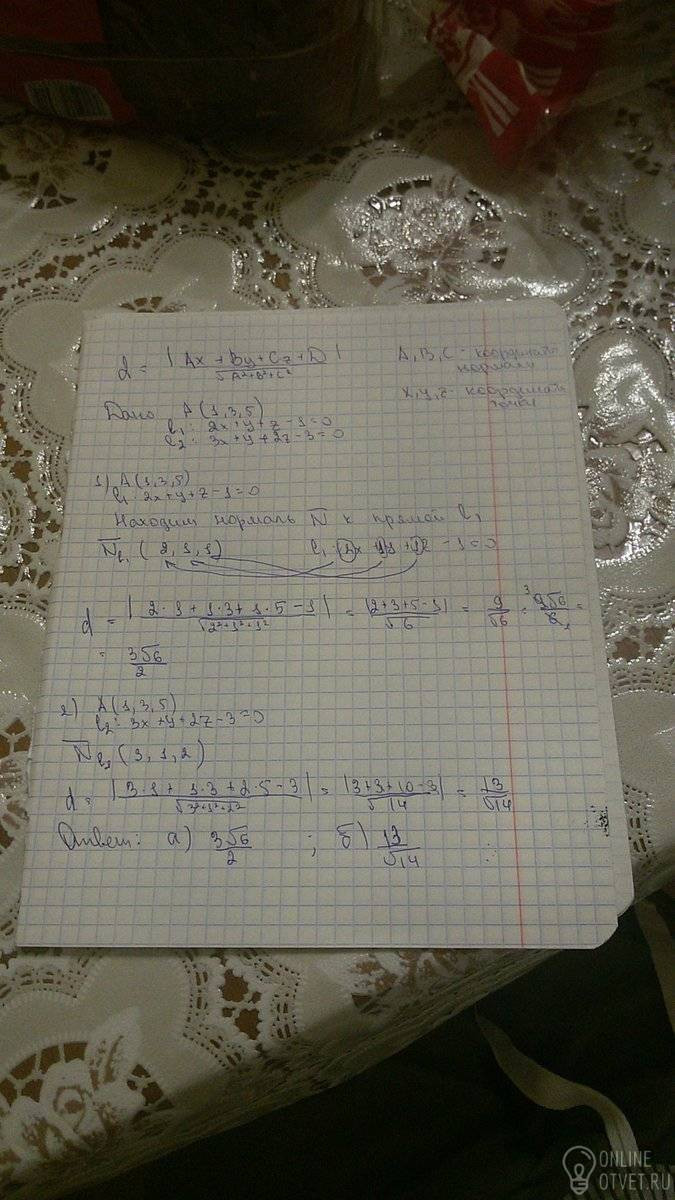 d = |Ax + By + Cz + D| / √(A²+B²+C²)
A, B, C - координаты нормали
x, y, z - координаты точки
Дано A(1,3,5)
l₁: 2x+y+z-1=0
l₂: 3x+y+2z-3=0
1) A(1,3,5)
l₁: 2x+y+z-1=0
Находим нормаль N к прямой l₁
N̅l₁ (2,1,1) l₁: 2x + 1y + 1z - 1=0
d = |2·1 + 1·3 + 1·5 - 1| / √(2²+1²+1²) = |2+3+5-1| / √6 = 9/√6 = 9√6/6 =
= 3√6/2
2) A(1,3,5)
l₂: 3x+y+2z-3=0
N̅l₂ (3,1,2)
d = |3·1 + 1·3 + 2·5 - 3| / √(3²+1²+2²) = |3+3+10-3| / √14 = 13/√14
Ответ: а) 3√6/2 ; б) 13/√14
ONLINE
OTVET.RU